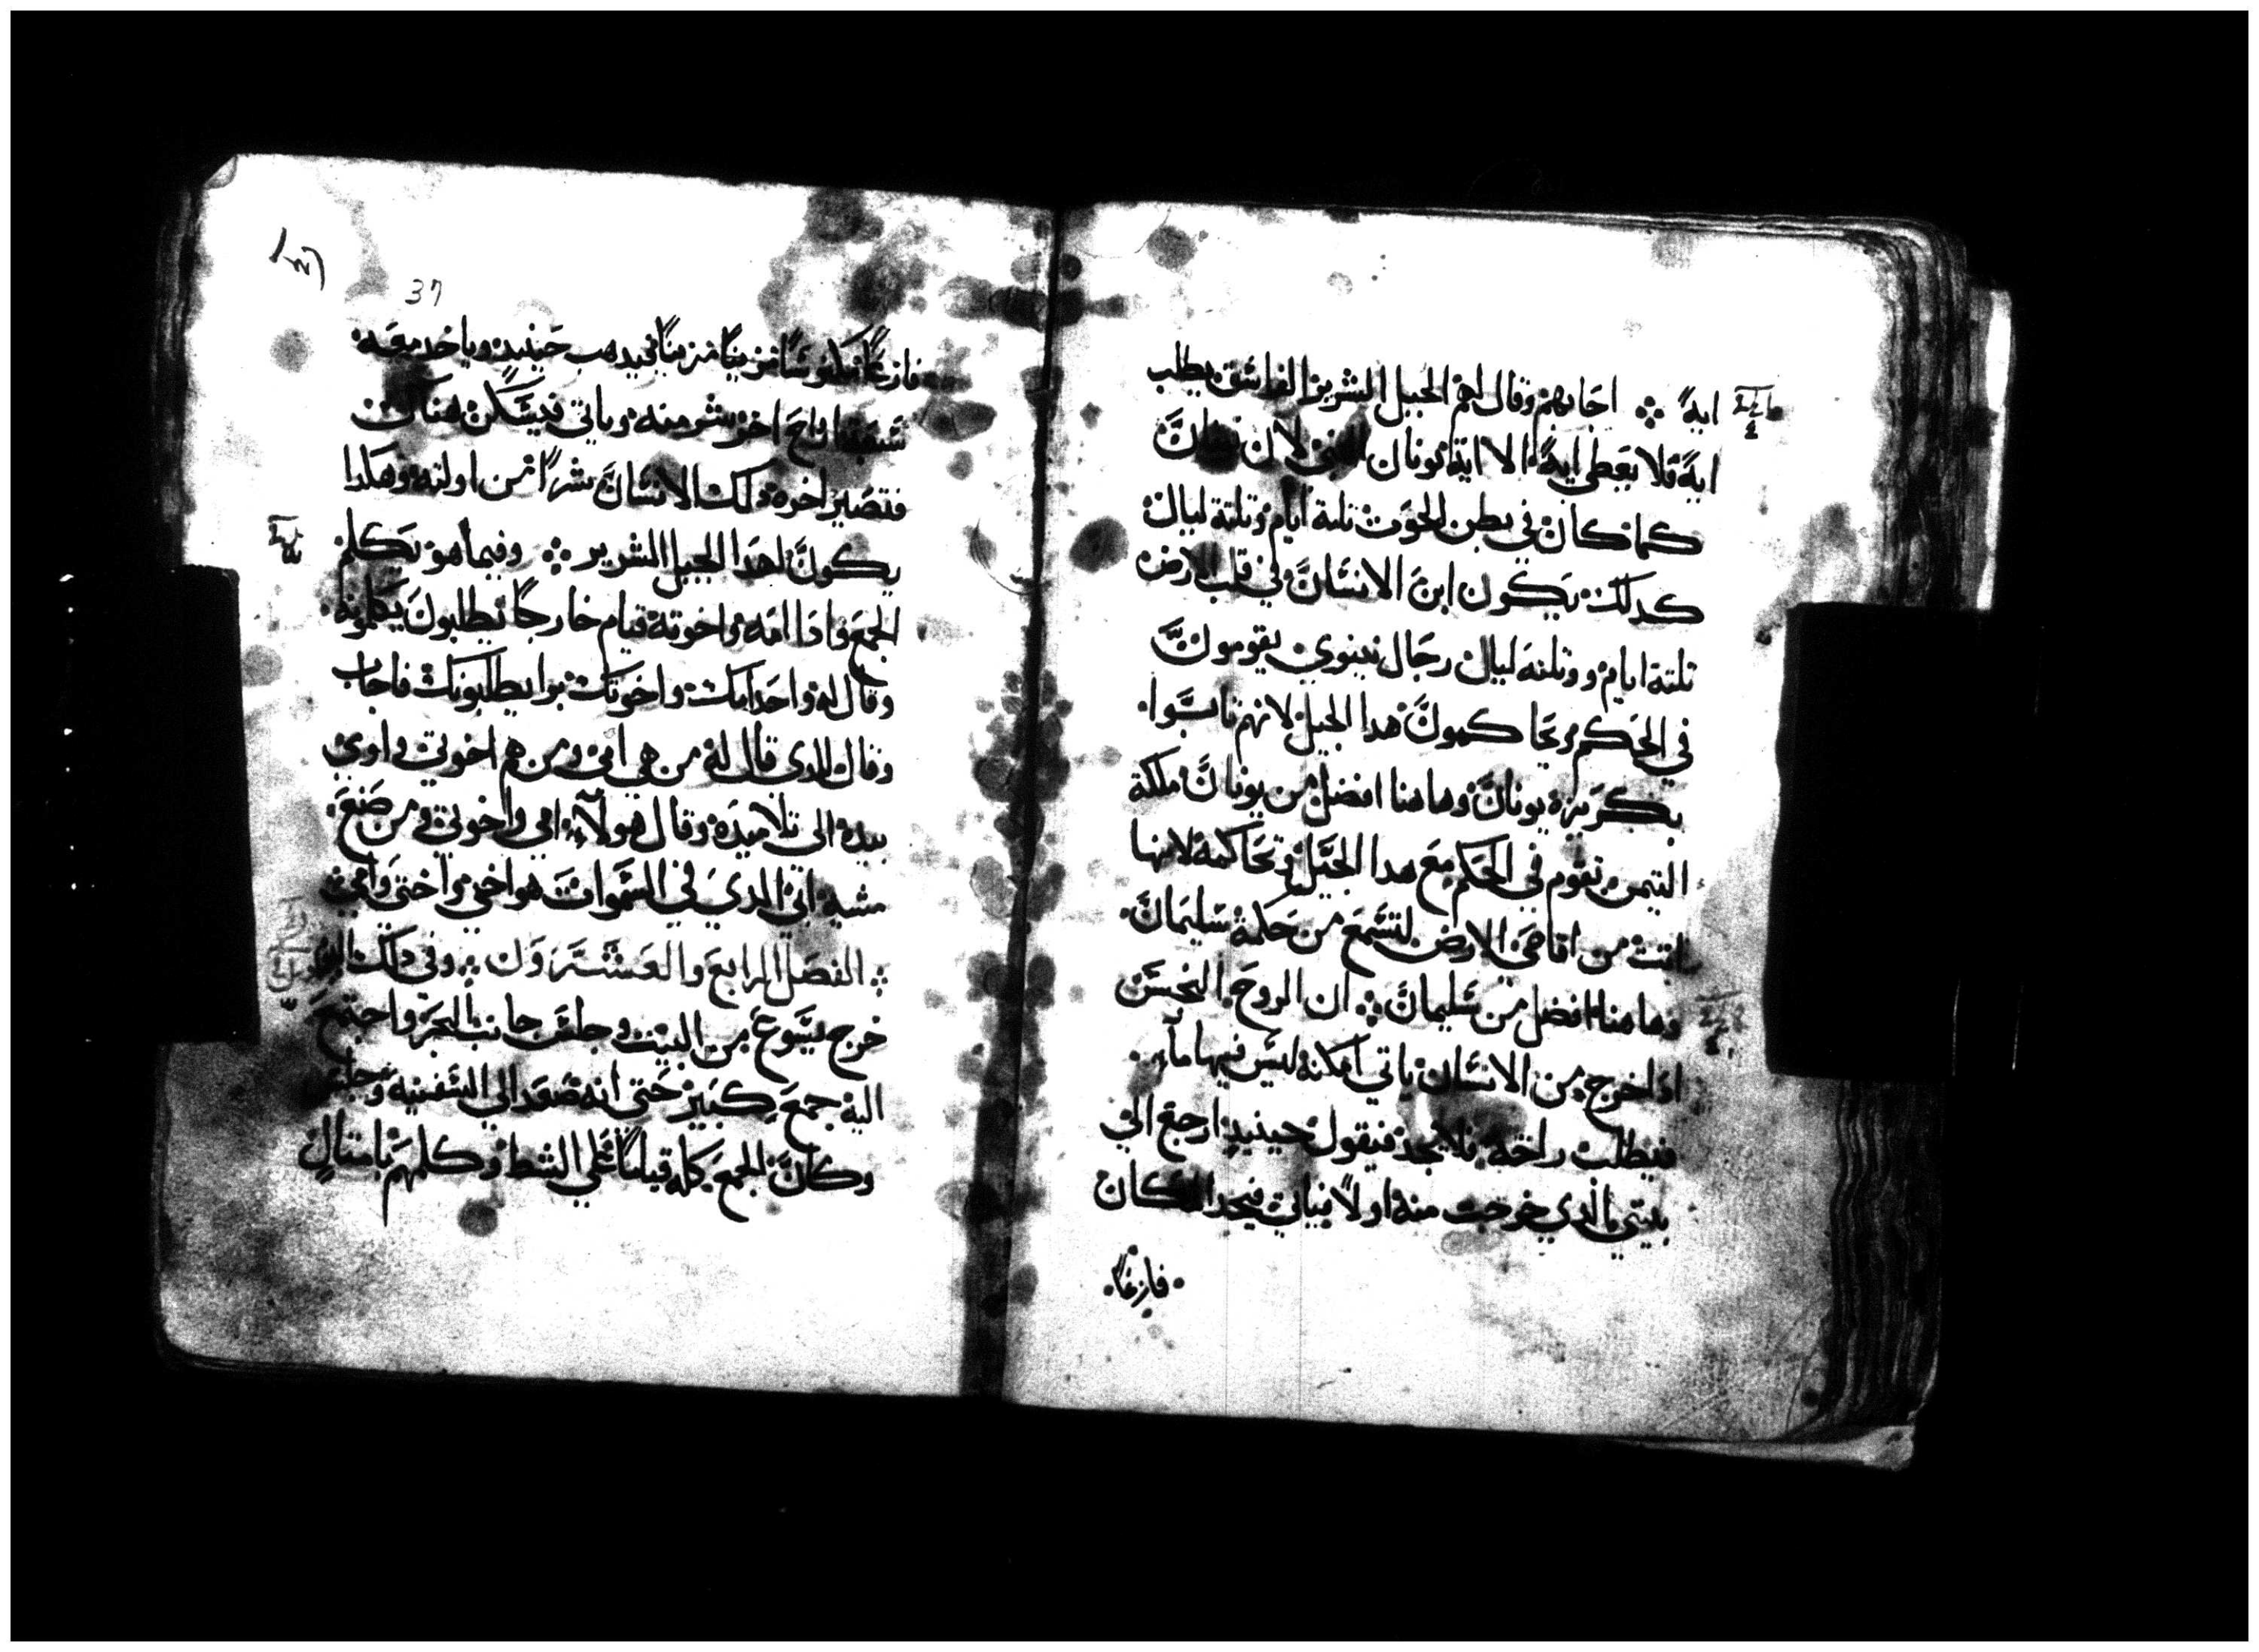 ايه ۞ اجابهم وقال لهم الجيل الشرير الفاسق يطلب
ايه فلا يعطي ايه الا اية يونان النبي لان يونان
كما كان في بطن الحوت تلتة ايام وتلتة ليال
كدلك يكون ابن الانسان في قلب الارض
تلتة ايام وتلتة ليال رجال نينوي يقومون
في الحكم ويحاكمون هدا الجيل لانهم تابوا
بكريزة يونان وهاهنا افضل من يونان ملكة
التيمن تقوم في الحكم مع هدا الجيل وتحاكمه لانها
اتت من اقاصي الارض لتسمع من حكمة سليمان
وهاهنا افضل من سليمان ۞ ان الروح النجس
ادا خرج من الانسان ياتي امكنة ليس فيها مآء
فيطلب راحة فلا يجد فيقول حينيد ارجع الي
بيتي الدي خرجت منه اولا فياتي فيجد المكان
فارغا
37
فارغا مكنوسا مزينا فيدهب حينيد وياخد معه
سبعة ارواح اخر شر منه وياتي فيسكن هناك
فتصير اخرة دلك الانسان شرا من اولته وهكدا
يكون لهدا الجيل الشرير ۞ وفيما هو يكلم
الجمع وادا امه واخوته قيام خارجا يطلبون يكلمونه
وقال له واحد امك واخوتك برا يطلبونك فاجاب
وقال للدي قال له من هي امي ومن هم اخوتي واوي
بيده الى تلاميده وقال هولآء امي واخوتي ومن صنع
مشية ابي الدي في السموات هو اخي واختي وامي
الفصل الرابع والعشرون وفي دلك اليوم
خرج يسوع من البيت وجلس جانب البحر واجتمع
اليه جمع كبير حتى انه صعد الي السفينه وجلس
وكان الجمع كله قياما علي الشط وكلمهم بامتال